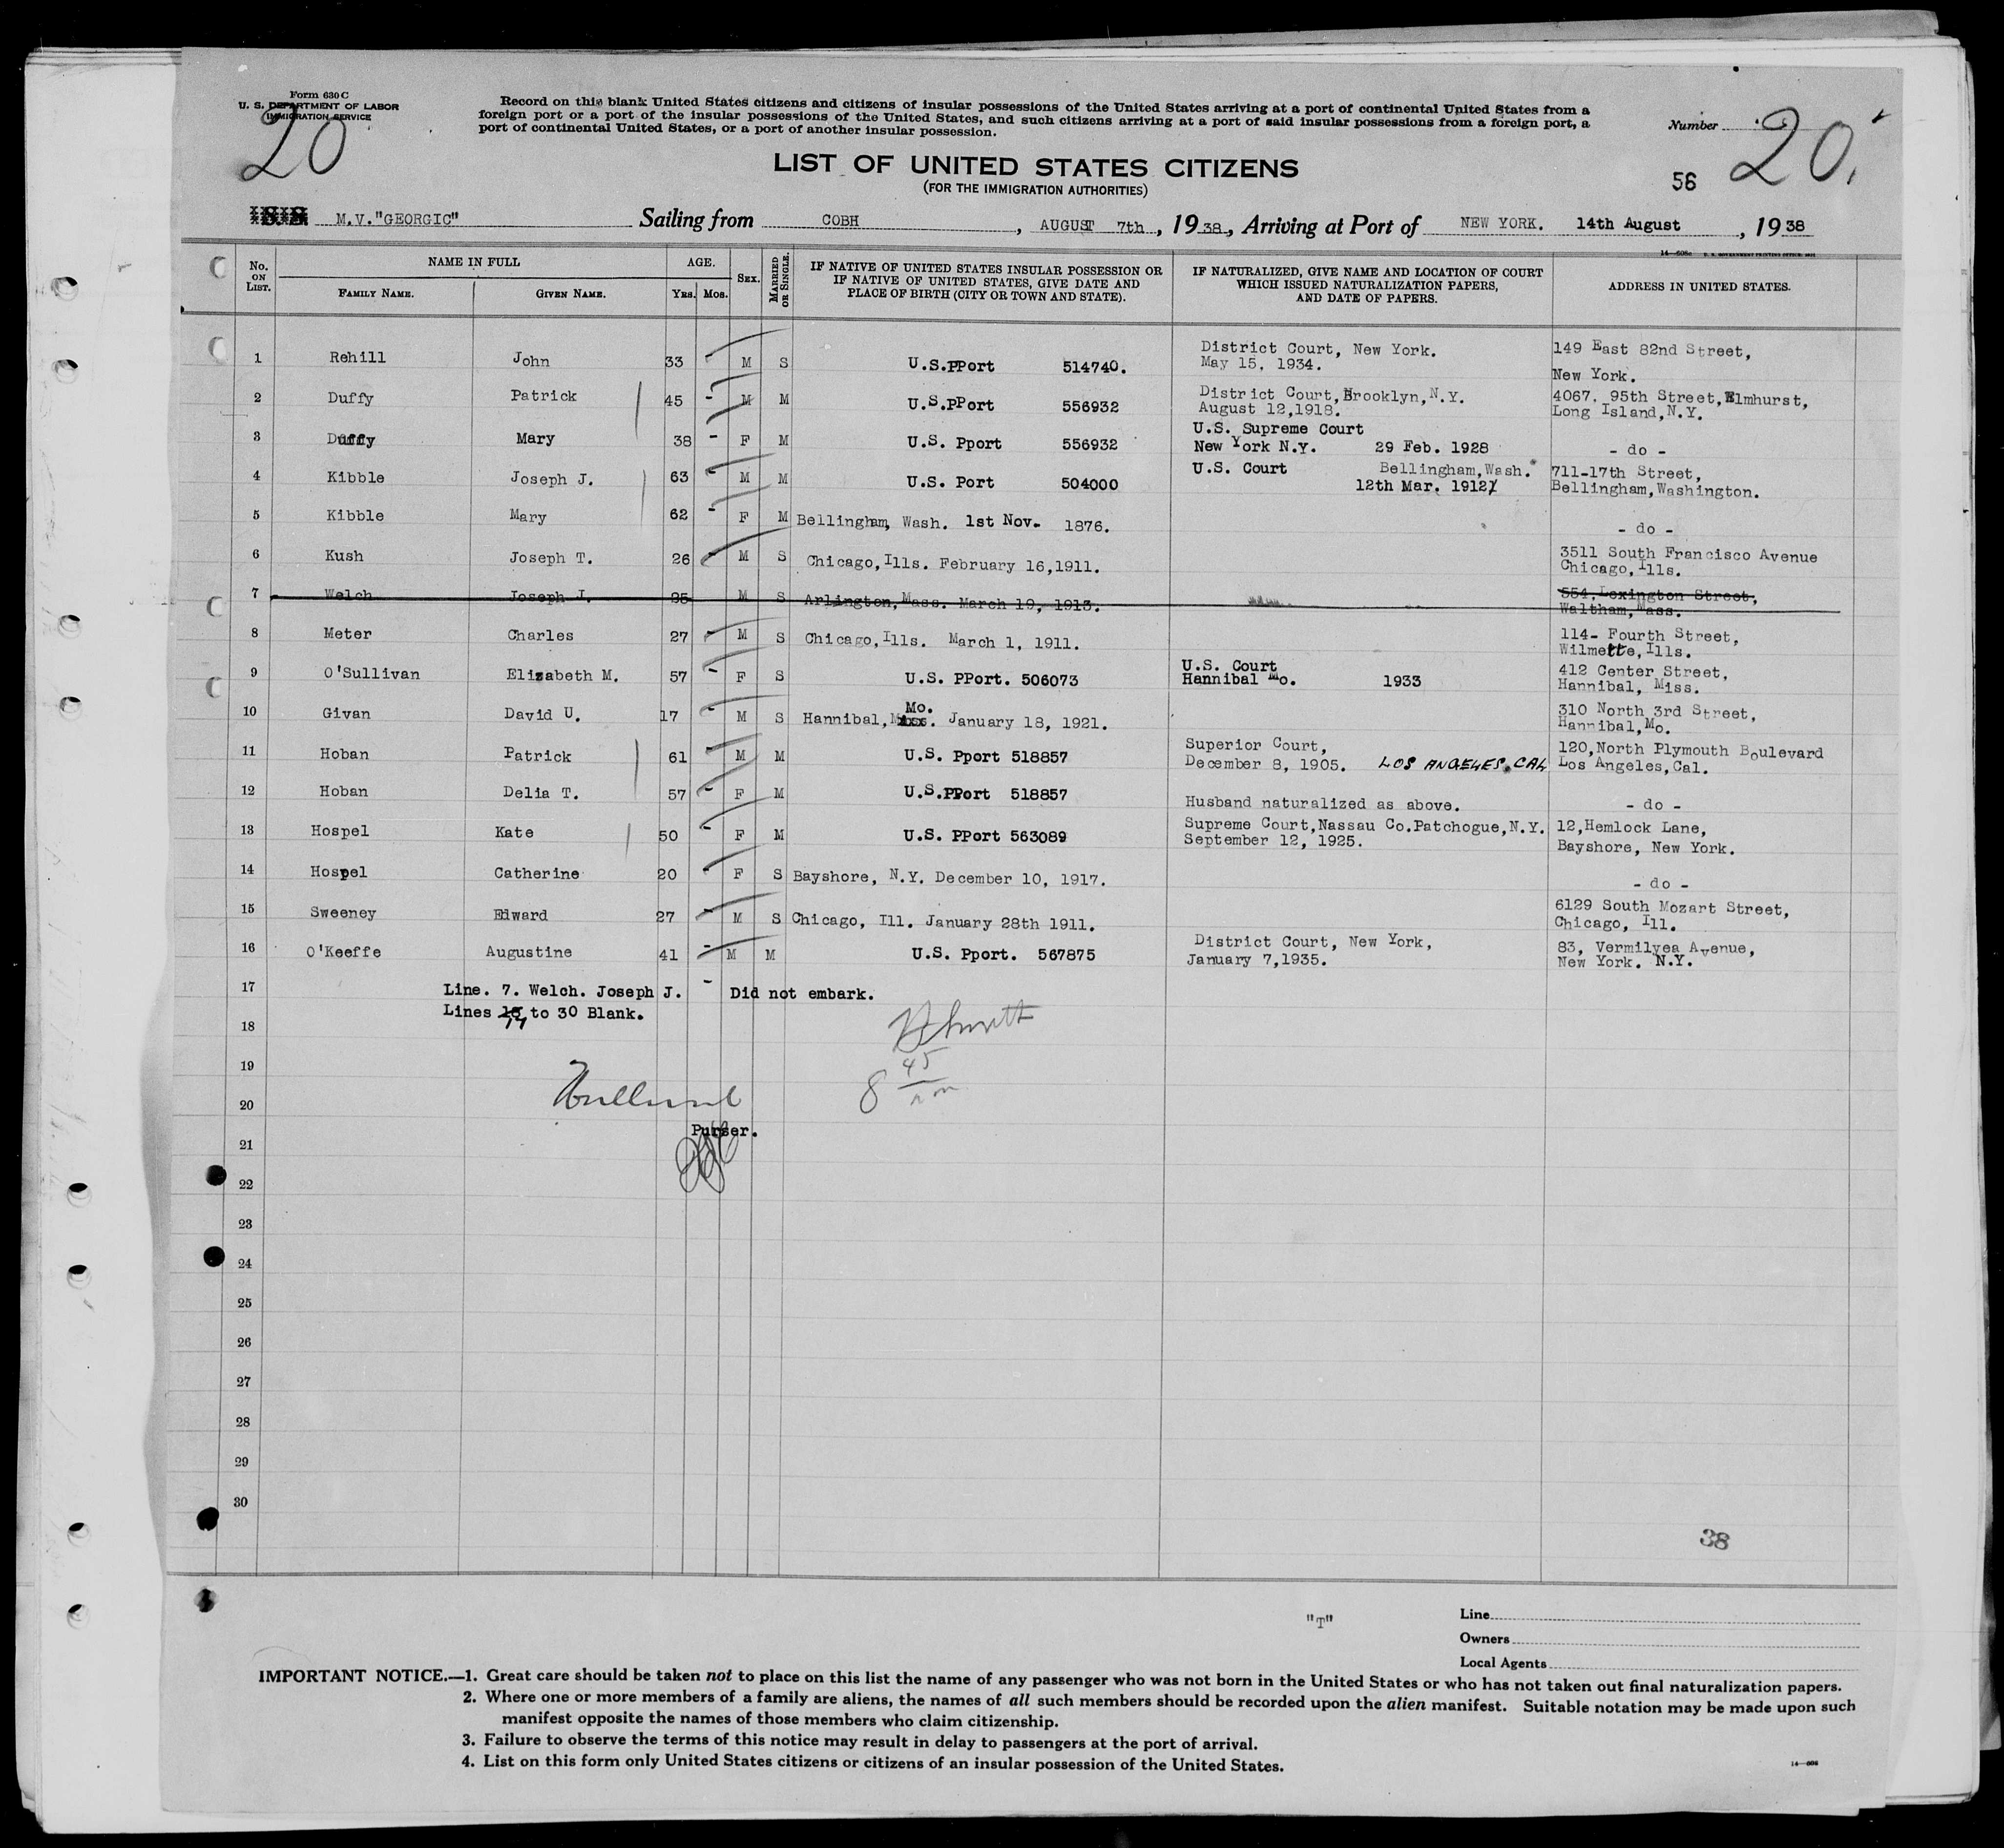 Form 630 C
U. S. DEPARTMENT OF LABOR
IMMIGRATION SERVICE
20
Record on this blank United States citizens and citizens of insular possessions of the United States arriving at a port of continental United States from a
foreign port or a port of the insular possessions of the United States, and such citizens arriving at a port of said insular possessions from a foreign port, a
port of continental United States, or a port of another insular possession.
Number 20.
LIST OF UNITED STATES CITIZENS
(FOR THE IMMIGRATION AUTHORITIES)
56
M.V."GEORGIC" Sailing from COBH, AUGUST 7th, 1938, Arriving at Port of NEW YORK. 14th August, 1938
No. ON LIST. NAME IN FULL FAMILY NAME. GIVEN NAME. AGE. YRS. MOS. SEX. MARRIED OR SINGLE. IF NATIVE OF UNITED STATES INSULAR POSSESSION OR IF NATIVE OF UNITED STATES, GIVE DATE AND PLACE OF BIRTH (CITY OR TOWN AND STATE). IF NATURALIZED, GIVE NAME AND LOCATION OF COURT WHICH ISSUED NATURALIZATION PAPERS, AND DATE OF PAPERS. ADDRESS IN UNITED STATES.
1 Rehill John 33 M S U.S.PPort 514740. District Court, New York. May 15, 1934. 149 East 82nd Street, New York.
2 Duffy Patrick 45 - M M U.S.PPort 556932 District Court, Brooklyn, N.Y. August 12,1918. 4067. 95th Street, Elmhurst, Long Island, N.Y.
3 Duffy Mary 38 - F M U.S. Pport 556932 U.S. Supreme Court New York N.Y. 29 Feb. 1928 - do -
4 Kibble Joseph J. 63 - M M U.S. Port 504000 U.S. Court Bellingham, Wash. 12th Mar. 1912 711-17th Street, Bellingham, Washington.
5 Kibble Mary 62 - F M Bellingham, Wash. 1st Nov. 1876. - do -
6 Kush Joseph T. 26 - M S Chicago, Ills. February 16,1911. 3511 South Francisco Avenue Chicago, Ills.
7 Welch Joseph J. 25 M S Arlington, Mass. March 19, 1913. 554, Lexington Street, Waltham, Mass.
8 Meter Charles 27 - M S Chicago, Ills. March 1, 1911. 114- Fourth Street, Wilmette, Ills.
9 O'Sullivan Elizabeth M. 57 - F S U.S. PPort. 506073 U.S. Court Hannibal Mo. 1933 412 Center Street, Hannibal, Miss.
10 Givan David U. 17 - M S Hannibal, Mo. January 18, 1921. 310 North 3rd Street, Hannibal, Mo.
11 Hoban Patrick 61 - M M U.S. Pport 518857 Superior Court, December 8, 1905. LOS ANGELES, CAL 120, North Plymouth Boulevard Los Angeles, Cal.
12 Hoban Delia T. 57 - F M U.S.PPort 518857 Husband naturalized as above. - do -
13 Hospel Kate 50 - F M U.S. PPort 563089 Supreme Court, Nassau Co. Patchogue, N.Y. September 12, 1925. 12, Hemlock Lane, Bayshore, New York.
14 Hospel Catherine 20 - F S Bayshore, N.Y. December 10, 1917. - do -
15 Sweeney Edward 27 - M S Chicago, Ill. January 28th 1911. 6129 South Mozart Street, Chicago, Ill.
16 O'Keeffe Augustine 41 - M M U.S. Pport. 567875 District Court, New York, January 7,1935. 83, Vermilyea Avenue, New York. N.Y.
17 Line. 7. Welch. Joseph J. - Did not embark.
Lines 17 to 30 Blank.
18
19
8 45
20
Purser.
21
22
23
24
25
26
27
28
29
30
38
"T"
Line
Owners
Local Agents
IMPORTANT NOTICE.—1. Great care should be taken not to place on this list the name of any passenger who was not born in the United States or who has not taken out final naturalization papers.
2. Where one or more members of a family are aliens, the names of all such members should be recorded upon the alien manifest. Suitable notation may be made upon such
manifest opposite the names of those members who claim citizenship.
3. Failure to observe the terms of this notice may result in delay to passengers at the port of arrival.
4. List on this form only United States citizens or citizens of an insular possession of the United States.